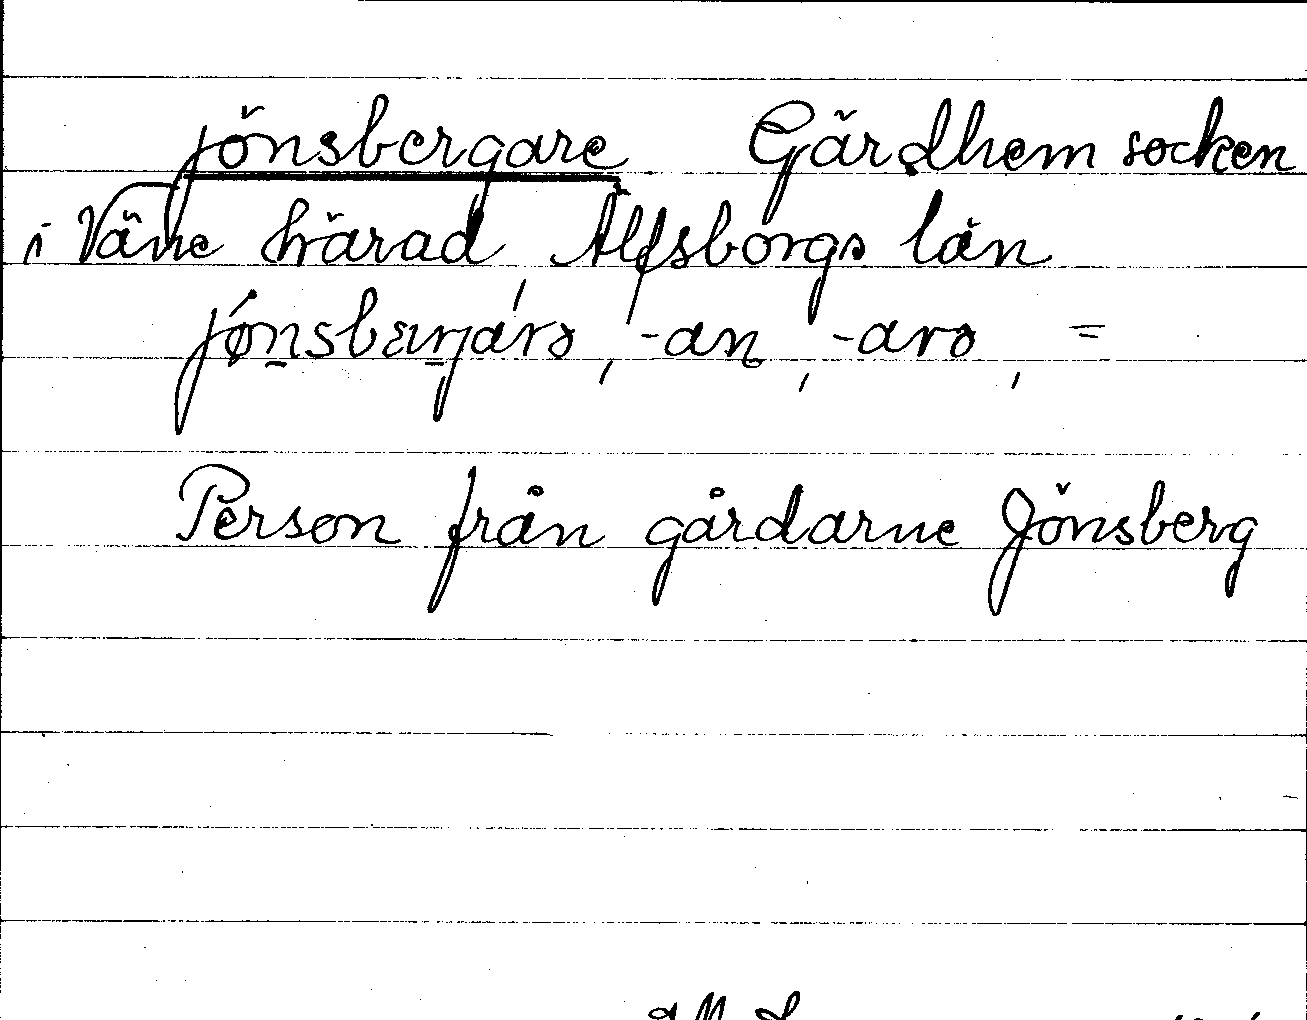 jönsbergare Gärdhem socken
i Väne härad, Älfsborgs län
-an, -arə, =
Person från gårdarne Jönsberg